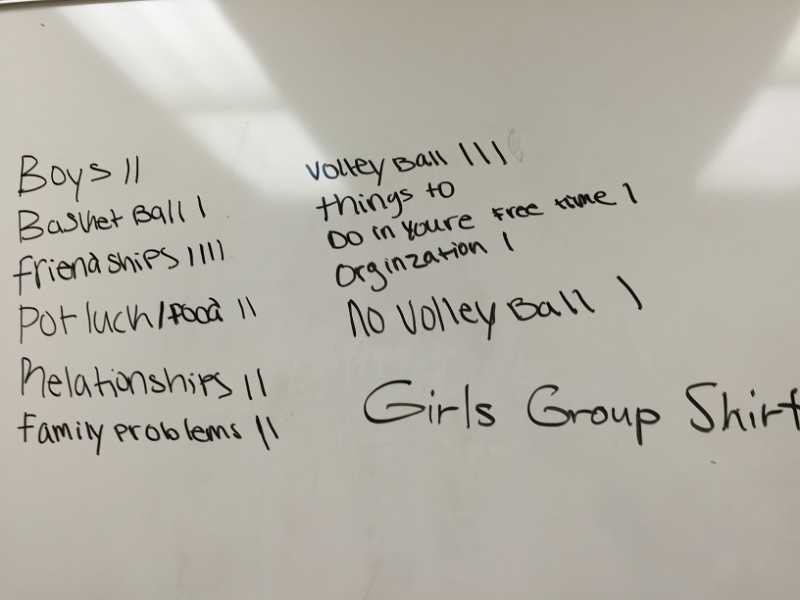 Boys ||
Basket Ball |
friendships ||||
Potluck/food ||
Relationships ||
family problems ||
Volley Ball |||
things to
Do in youre free time |
Orginzation |
No Volley Ball |
Girls Group Shirt